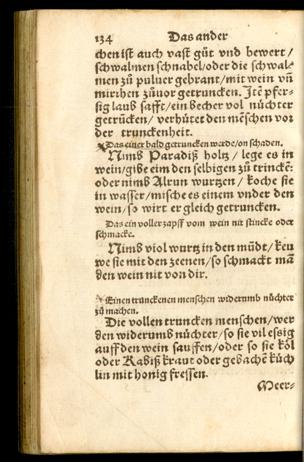 134 Das ander
chen ist auch vast gůt vnd bewert /
schwalmen schnabel/oder die schwal⸗
men zů puluer gebrant/mit wein vñ
mirrhen zůuor getruncken. Jtē pfer⸗
sig laub safft/ein becher vol nůchter
getrūcken/ verhütet den mēschen vor
der trunckenheit.
Das einer bald getruncken werde/on schaden.
Nimb Paradiß holtz / lege es in
wein/gibe eim den selbigen zů trinckē:
oder nimb Alrun wurtzen / koche sie
in wasser/mische es einem vnder den
wein/so wirt er gleich getruncken.
Das ein voller zapff vom wein nit stincke oder
schmacke.
Nimb viol wurtz in den můdt/keu
we sie mit den zeenen/so schmackt mā
den wein nit von dir.
Einen trunckenen menschen widerumb nůchter
zů machen.
Die vollen truncken menschen/wer
den widerumb nůchter/so sie vil essig
auff den wein sauffen/oder so sie köl
oder Kabiß kraut oder gebachē kůch
lin mit honig fressen.
Meer⸗